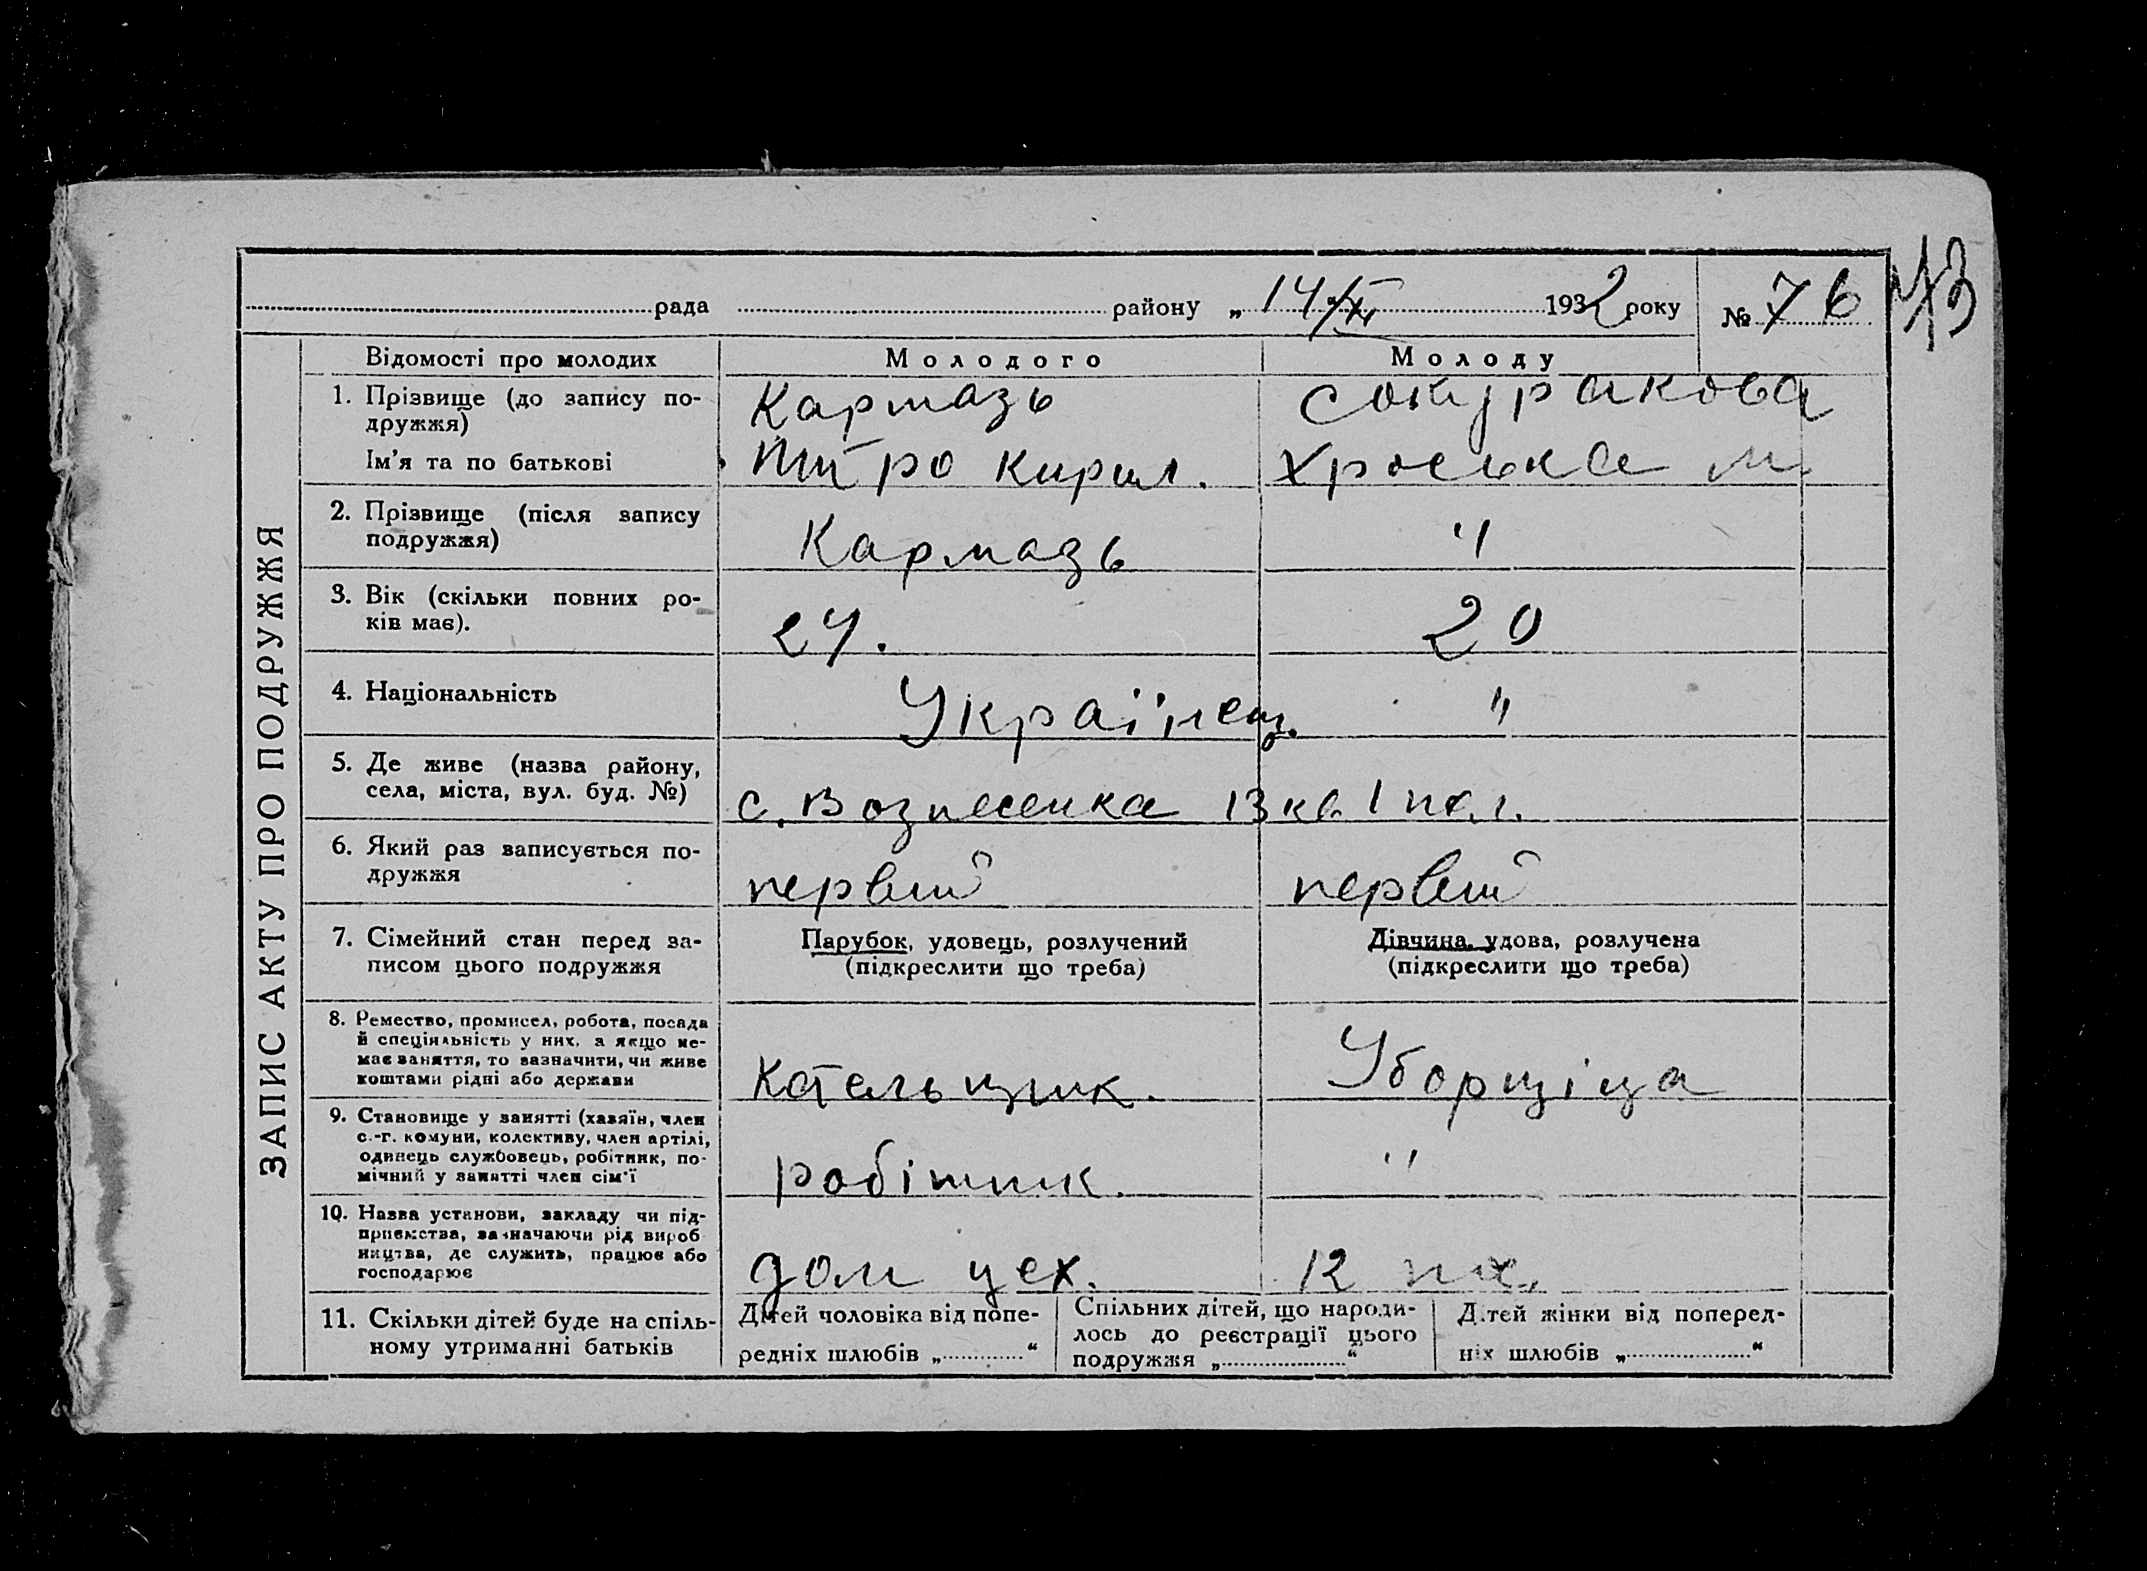 рада району „ 14/XI 1932 року № 76
43
ЗАПИС АКТУ ПРО ПОДРУЖЖЯ
Відомості про молодих Молодого Молоду
1. Прізвище (до запису по- Кармазь Сокуракова
дружжя)
Ім'я та по батькові Питро Кирил. Хроська М.
2. Прізвище (після запису
подружжя) Кармазь "
3. Вік (скільки повних ро-
ків має). 24. 20
4. Національність Українец. "
5. Де живе (назва району,
села, міста, вул. буд. №) с. Вознесенка 13 кв 1 пол.
6. Який раз записується по-
дружжя первий первий
7. Сімейний стан перед за- Парубок, удовець, розлучений Дівчина, удова, розлучена
писом цього подружжя (підкреслити що треба) (підкреслити що треба)
8. Ремество, промисел, робота, посада
й спеціяльність у них, а якщо не-
має заняття, то зазначити, чи живе
коштами рідні або держави Котельщик. Уборщіца
9. Становище у занятті (хазяїн, член
с.-г. комуни, колективу, член артілі,
одинець службовець, робітник, по-
мічний у занятті член сім'ї робітник. "
10. Назва установи, закладу чи під-
приємства, зазначаючи рід вироб
ництва, де служить, працює або
господарює дом цех. 12
11. Скільки дітей буде на спіль-
ному утриманні батьків
Дітей чоловіка від попе-
редніх шлюбів „ “
Спільних дітей, що народи-
лось до реєстрації цього
подружжя „ “
Дітей жінки від поперед-
ніх шлюбів „ “